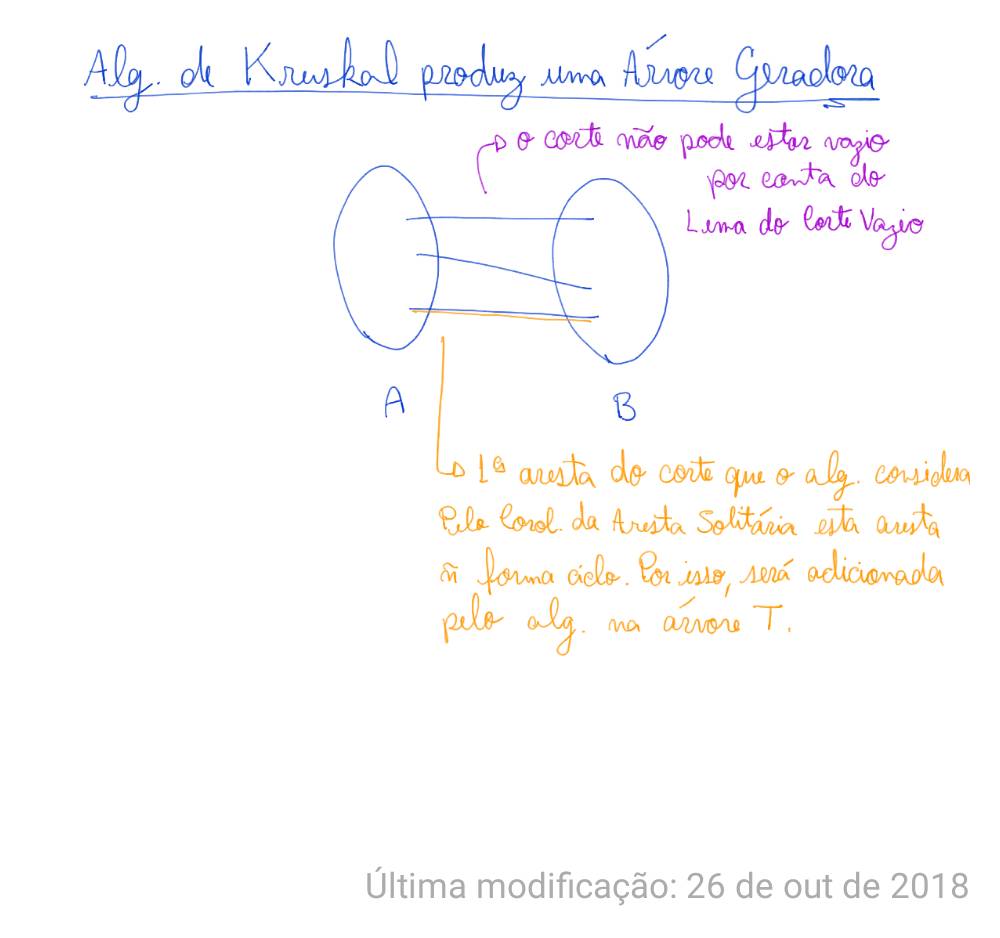 Alg. de Kruskal produz uma Árvore Geradora
o corte não pode estar vazio
por conta do
Lema do Corte Vazio
A
B
1ª aresta do corte que o alg. considera
Pelo Corol. da Aresta Solitária esta aresta
ñ forma ciclo. Por isso, será adicionada
pelo alg. na árvore T.
Última modificação: 26 de out de 2018